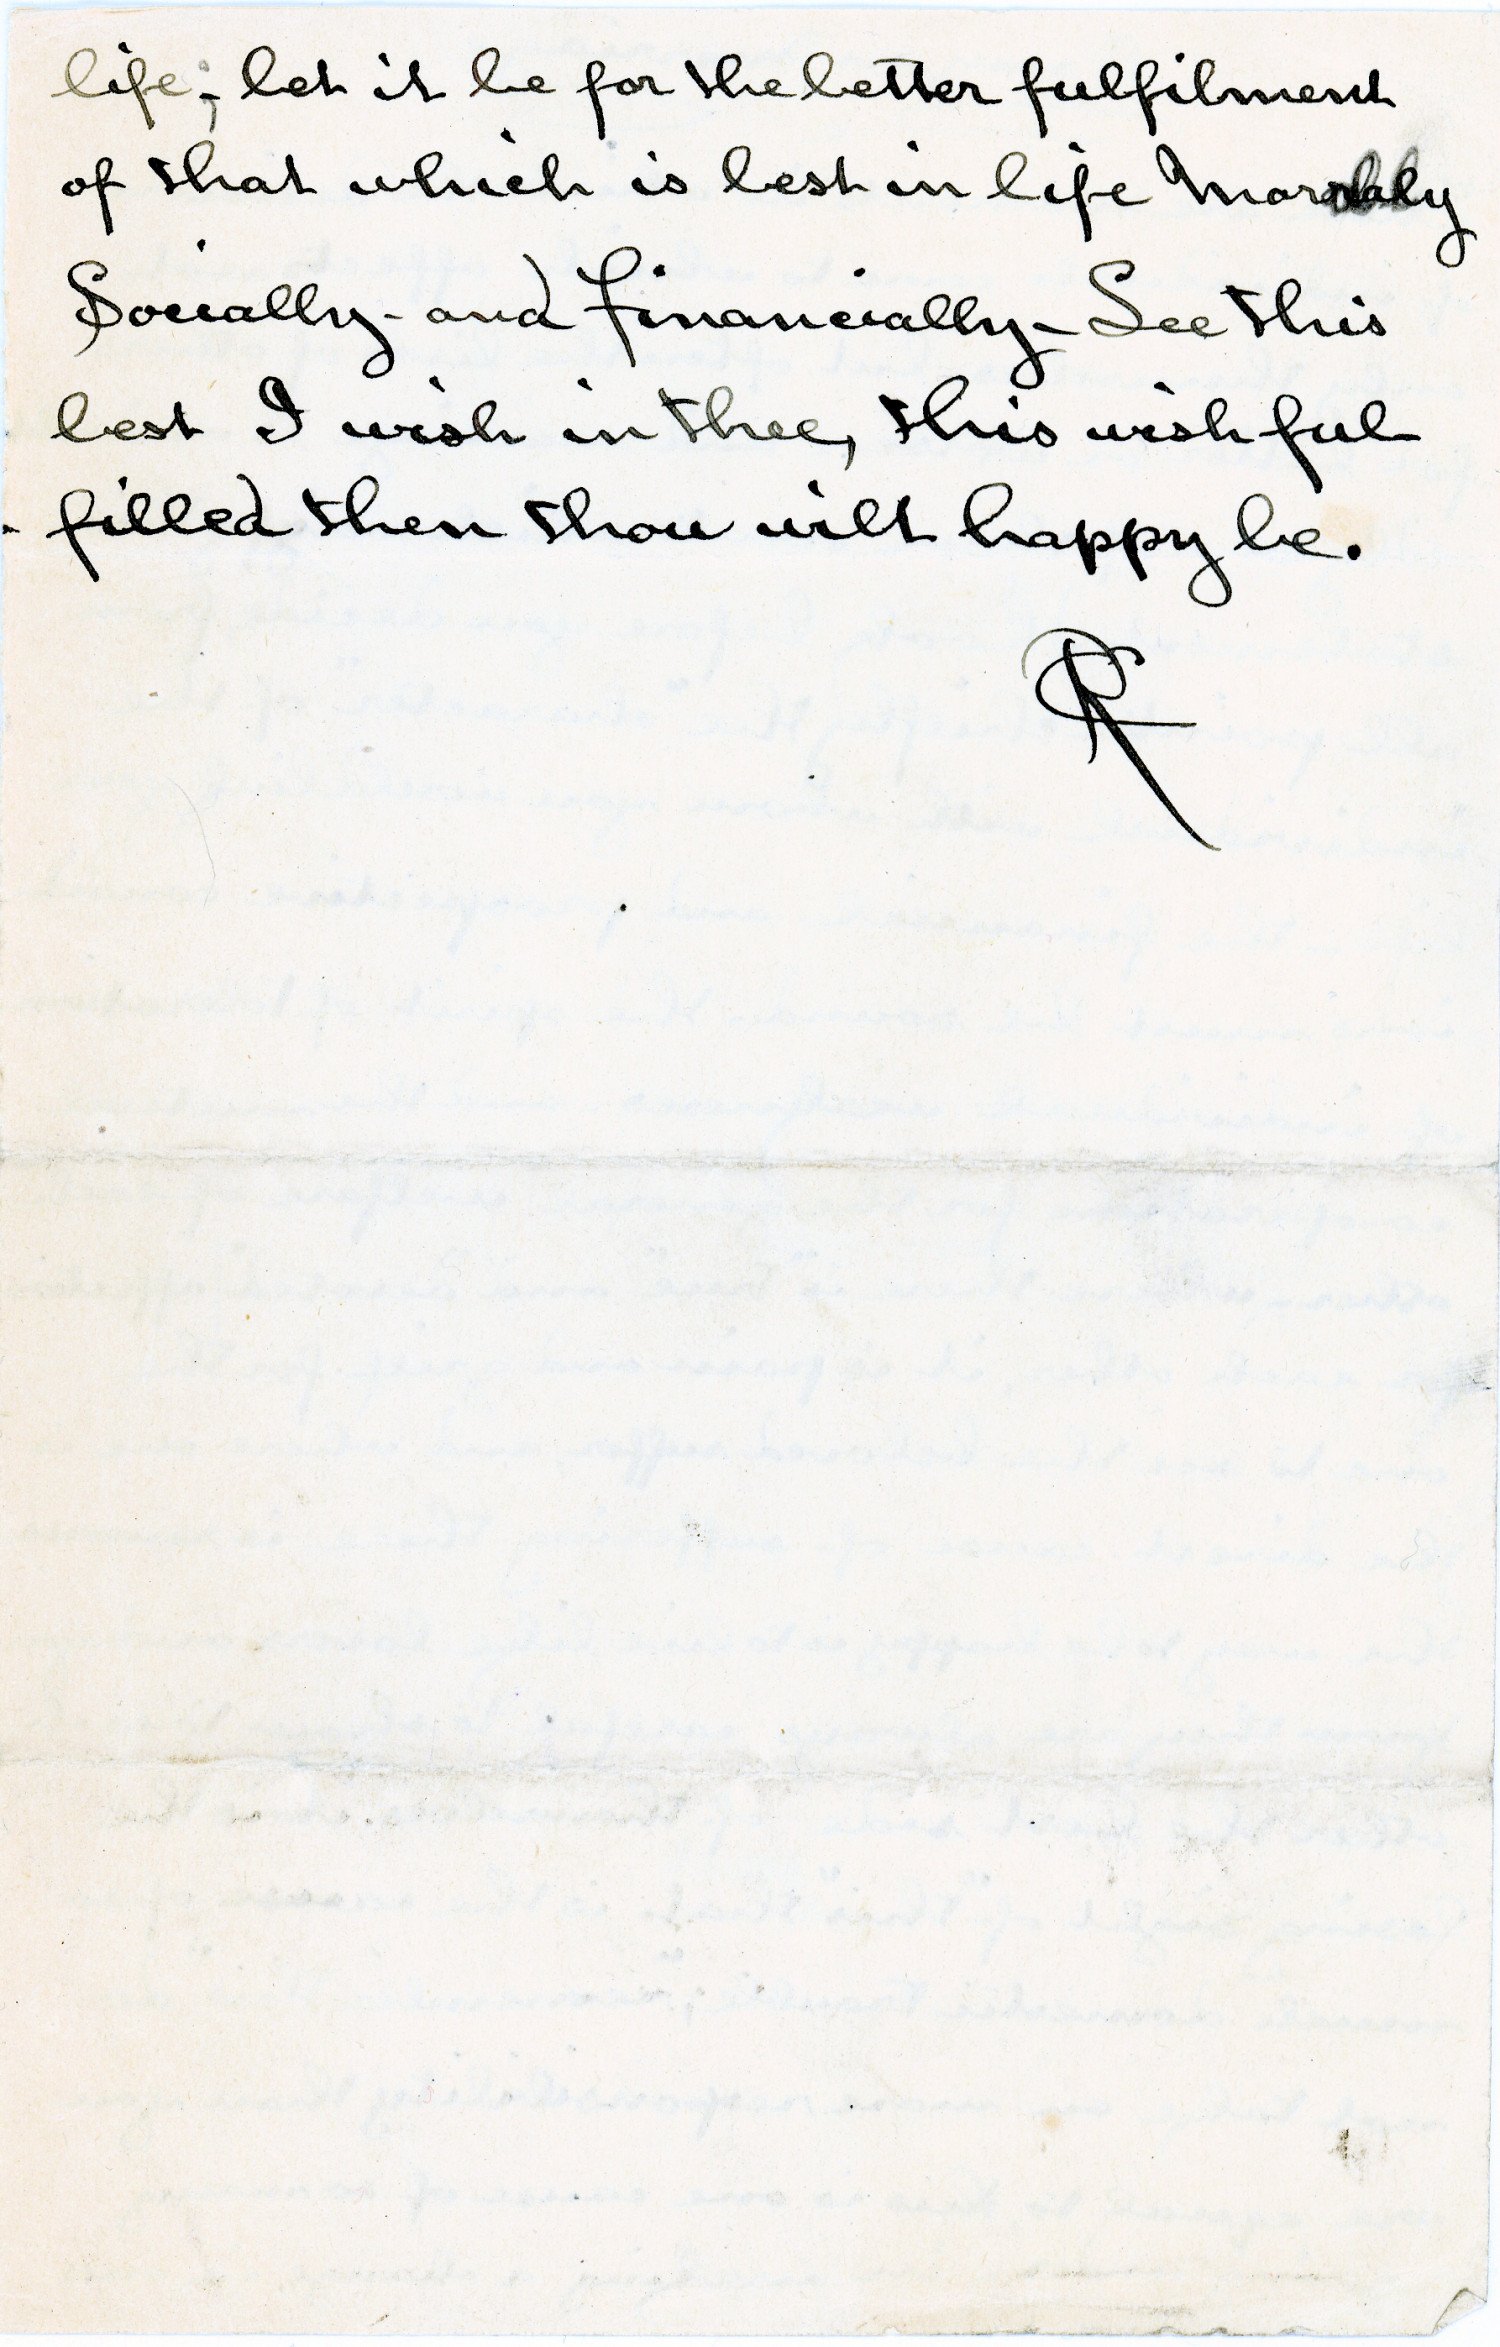 life; let it be for the better fulfilment
of that which is best in life Morally
Socially - and Financially - See this
best I wish in thee, this wish ful
- filled then thou wilt happy be.